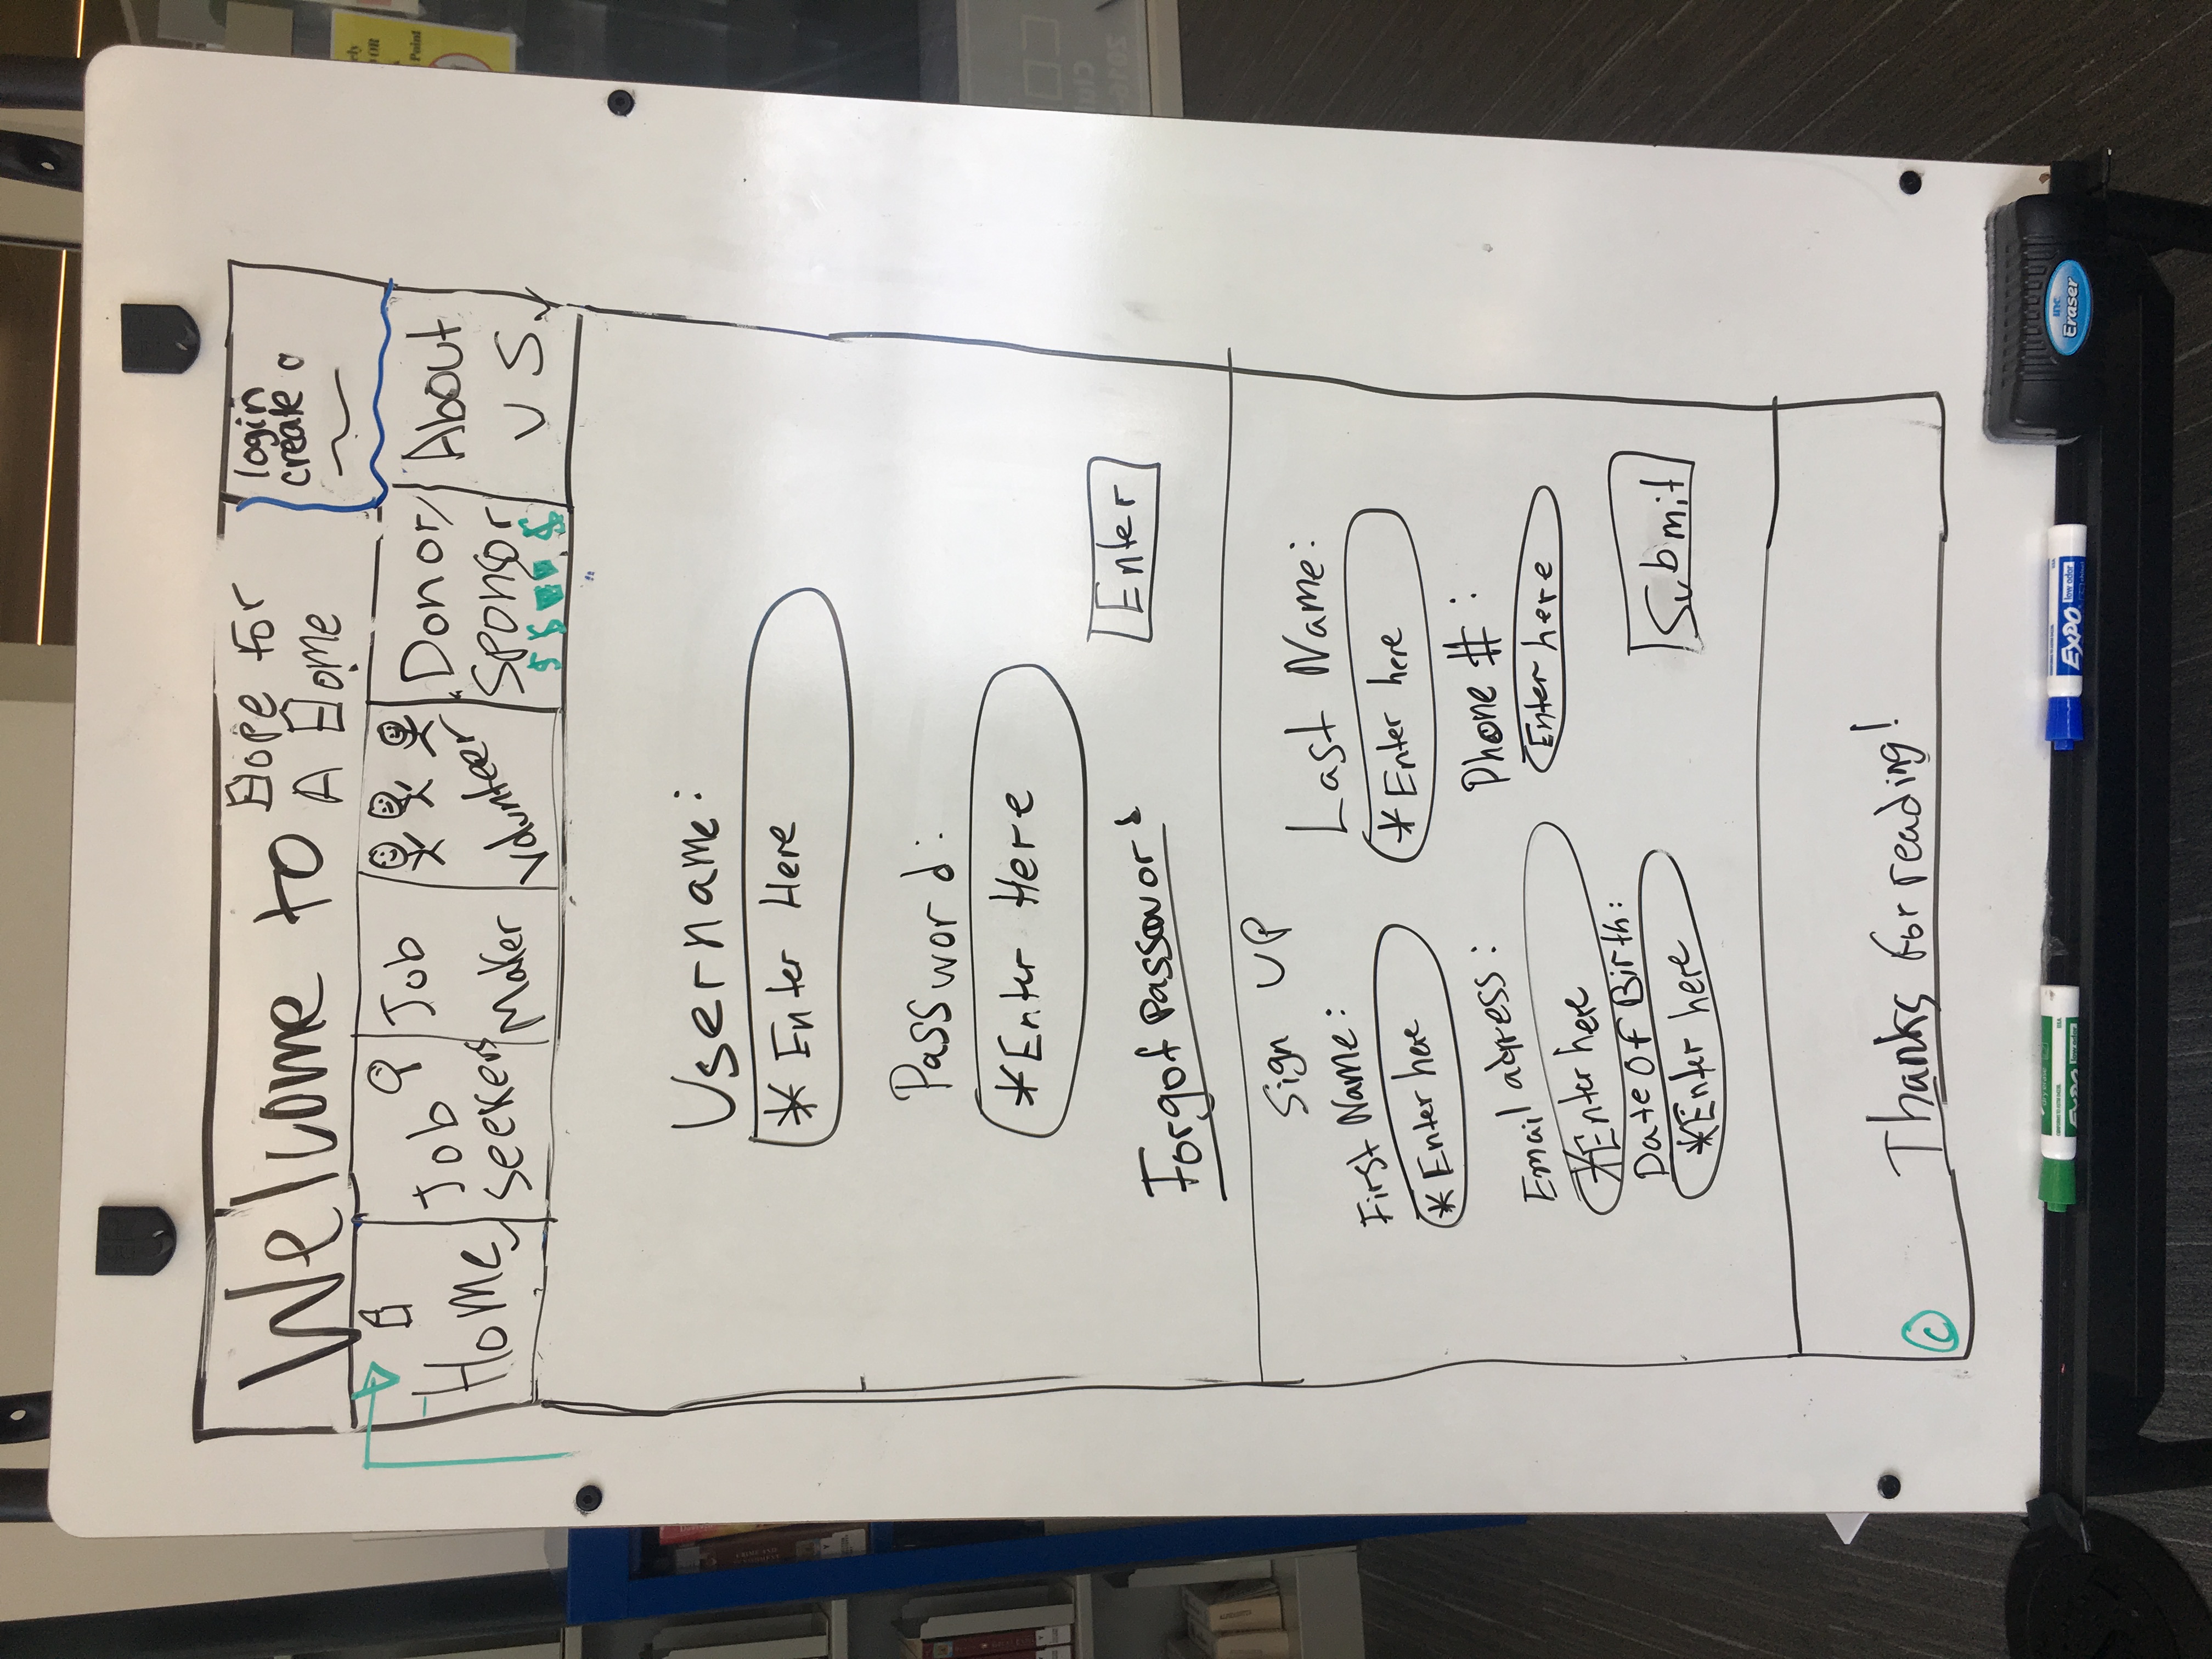 Welcome to
Hope For
A Home
login
create a
Home
Job
Seekers
Job
Maker
Volunteer
Donor/
Sponsor
$ $ $
About
US
Username:
* Enter Here
Password:
*Enter Here
Forgot password
Enter
Sign UP
First Name:
* Enter here
Last Name:
* Enter here
Email adress:
*Enter here
Phone # :
Enter here
Date Of Birth:
*Enter here
Submit
Thanks for reading!
©
EXPO
low odor
EXPO
low odor
Eraser
ely
OR
Point
Clu
2016-